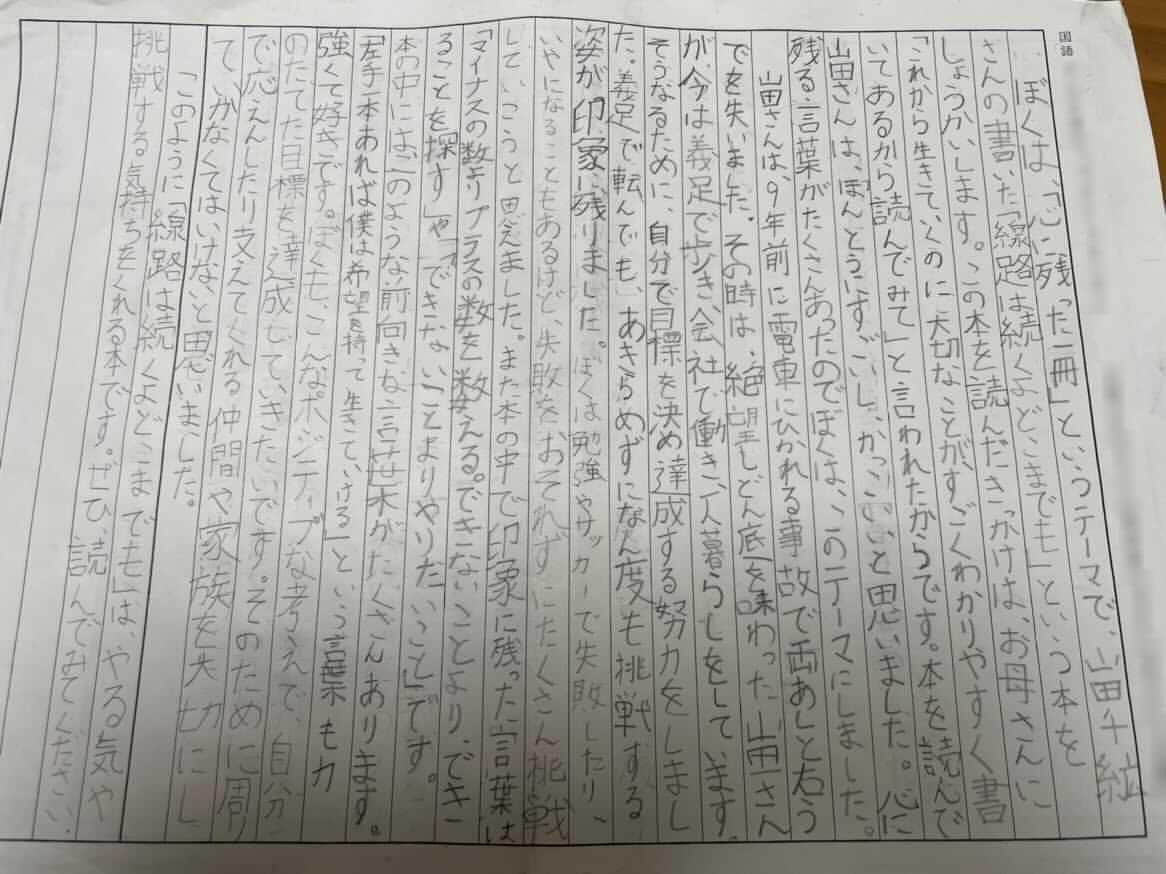 国語
ぼくは、「心に残った一冊」というテーマで、山田千紘
さんの書いた「線路は続くよどこまでも」という本を
しょうかいします。この本を読んだきっかけは、お母さんに
「これから生きていくのに大切なことが、すごくわかりやすく書
いてあるから読んでみて」と言われたからです。本を読んで
山田さんは、ほんとうにすごいし、かっこいいと思いました。心に
残る言葉がたくさんあったのでぼくは、このテーマにしました。
山田さんは、9年前に電車にひかれる事故で両あしと右う
でを失いました。その時は、絶望しどん底を味わった山田さん
が、今は義足で歩き、会社で働き、一人暮らしをしています。
そうなるために、自分で目標を決め達成する努力をしまし
た。義足で転んでも、あきらめずになん度も挑戦する
姿が印象に残りました。ぼくは勉強やサッカーで失敗したり、
いやになることもあるけど、失敗をおそれずにたくさん挑戦
していこうと思えました。また本の中で印象に残った言葉は
「マイナスの数よりプラスの数を数える。できないことより、でき
ることを探す」や「できないことよりやりたいこと」です。
本の中にはこのような前向きな言葉がたくさんあります。
「左手一本あれば僕は希望を持って生きていける」という言葉も力
強くて好きです。ぼくも、こんなポジティブな考えで、自分
のたてた目標を達成していきたいです。そのために周り
で応えんしたり支えてくれる仲間や家族を大切にし
ていかなくてはいけないと思いました。
このように「線路は続くよどこまでも」は、やる気や
挑戦する気持ちをくれる本です。ぜひ、読んでみてください。